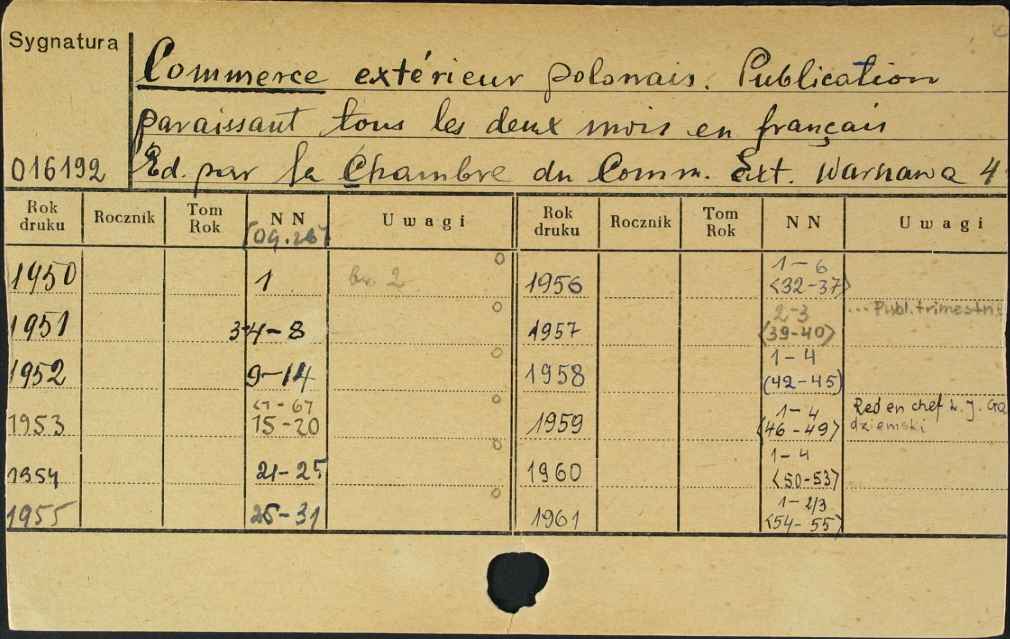 Sygnatura
Commerce extérieur polonais. Publication
paraissant tous les deux mois en français
016192
Ed. par la Chambre du Comm. Ext. Warszawa 4
Rok druku Rocznik Tom Rok N N Uwagi Rok druku Rocznik Tom Rok N N Uwagi
1950 1 br. 2 1956 1-6 <32-37>
1951 3+4-8 1957 2-3 (39-40) ...Publ. trimestri
1952 9-14 1958 1-4 (42-45)
1953 <1-6> 15-20 1959 1-4 <46-49> Red en chef L. J. Ga dziemski
1954 21-25 1960 1-4 <50-53>
1955 26-31 1961 1-2/3 <54-55>